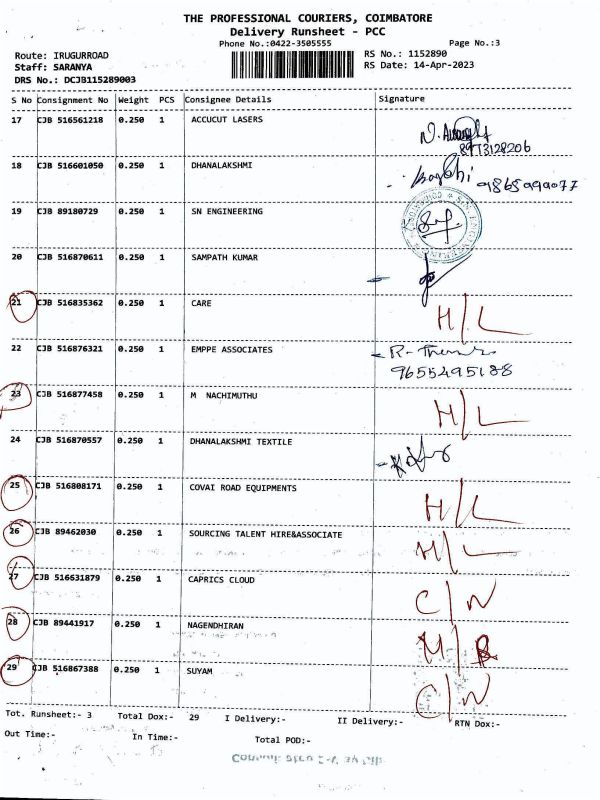 THE PROFESSIONAL COURIERS, COIMBATORE
Delivery Runsheet - PCC
Phone No.:0422-3505555
Page No.:3
Route: IRUGURROAD
RS No.: 1152890
Staff: SARANYA
RS Date: 14-Apr-2023
DRS No.: DCJB115289003
S No Consignment No Weight PCS Consignee Details Signature
17 CJB 516561218 0.250 1 ACCUCUT LASERS
8973128206
18 CJB 516601050 0.250 1 DHANALAKSHMI
19 CJB 89180729 0.250 1 SN ENGINEERING
20 CJB 516870611 0.250 1 SAMPATH KUMAR
21 CJB 516835362 0.250 1 CARE H/L
22 CJB 516876321 0.250 1 EMPPE ASSOCIATES
9655495188
23 CJB 516877458 0.250 1 M NACHIMUTHU H/L
24 CJB 516870557 0.250 1 DHANALAKSHMI TEXTILE
25 CJB 516808171 0.250 1 COVAI ROAD EQUIPMENTS H/L
26 CJB 89462030 0.250 1 SOURCING TALENT HIRE&ASSOCIATE H/L
27 CJB 516631879 0.250 1 CAPRICS CLOUD C/N
28 CJB 89441917 0.250 1 NAGENDHIRAN
29 CJB 516867388 0.250 1 SUYAM C/N
Tot. Runsheet:- 3 Total Dox:- 29 I Delivery:- II Delivery:- RTN Dox:-
Out Time:- In Time:- Total POD:-